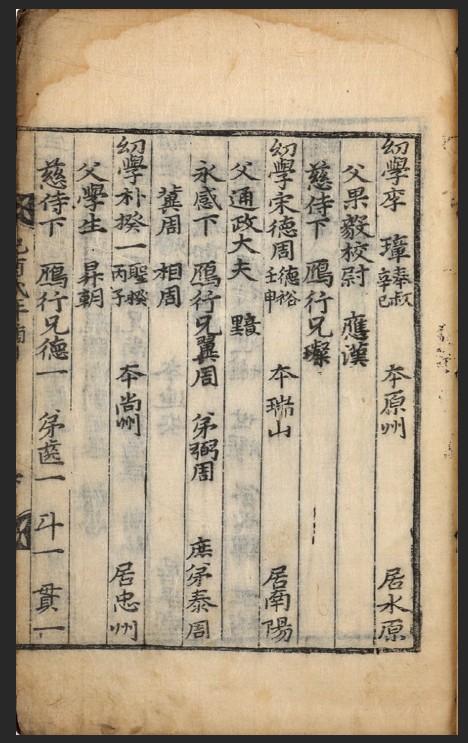 㓜學李 璋 奉叔 辛巳 夲原州 居水原
父果毅校尉 應漢
慈侍下 鴈行兄璨
㓜學宋德周 德裕 壬申 夲瑞山 居南陽
父通政大夫 黯
永感下 鴈行兄翼周 弟弼周 庶弟泰周
冀周 相周
㓜學朴揆一 聖揆 丙子 夲尙州 居忠州
父學生 昇朝
慈侍下 鴈行兄德一 弟薳一 斗一 貫一